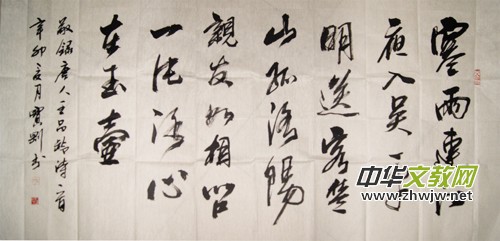 寒雨連江
夜入吴平
明送客楚
山孤洛陽
親友如相问
一片冰心
在玉壺
敬録唐人王昌龄诗一首
辛卯夏月寶刚书
中华文教网
www.zhwjw.net